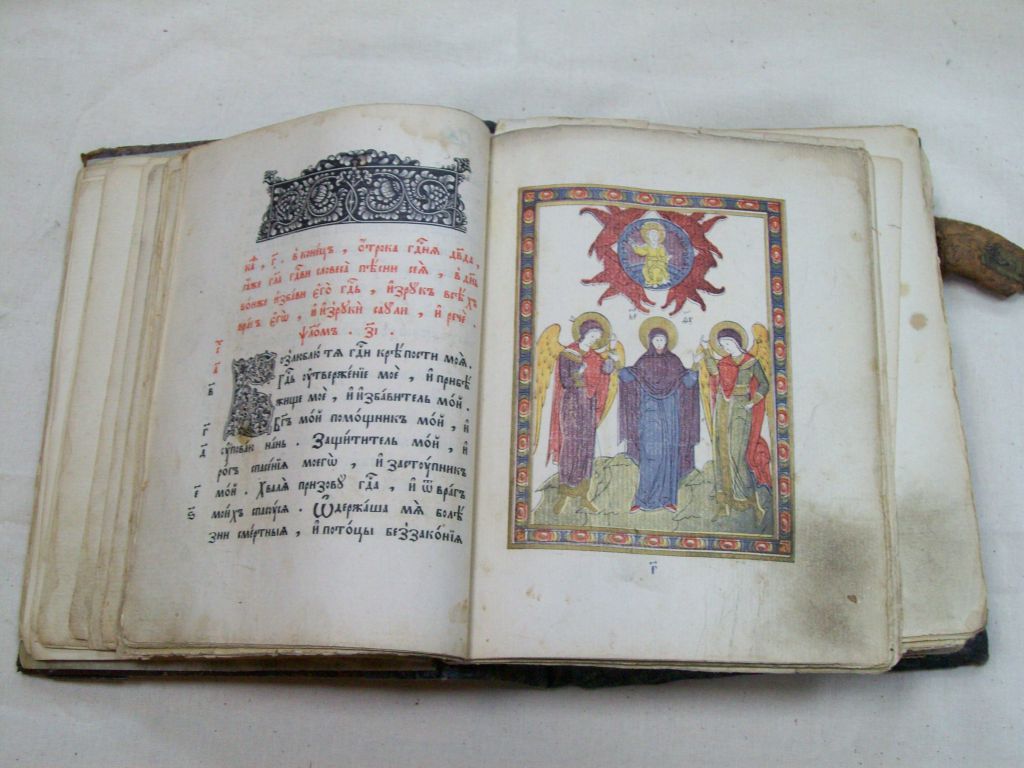 в конецъ , Отрока гдⷭ҇ня дв҃да ,
ꙗ҆́же гл҃а гдⷭ҇ви словеса пѣсни сеѧ̀ , в де́нь
во́ньже изба́ви єго̀ гдⷭ҇ь , ѿ рꙋкъ всѣхъ
враг є҆гѡ̀ , и҆ и҆зрꙋкѝ саꙋли , и҆ речѐ
ѱало́мъ . з҃і .
Возлюблю̀ тѧ̀ гдⷭ҇и крѣ́пости моѧ̀ .
гдⷭ҇ь ᲂу҆твержє́нїе моѐ , и҆ прибѣ́
жище моѐ , и҆ и҆зба́витель мо́й .
бг҃ъ мо́й помо́щникъ мо́й , и҆
ᲂу҆пова́ю на́нь . Защи́титель мо́й , и҆
ро́гъ спасе́нїѧ моегѡ̀ , и҆ застꙋ́пникъ
мо́й . Хвалѧ̀ призовꙋ̀ гдⷭ҇а , и҆ ѿ вра́гъ
мои́хъ спасꙋ́сѧ . Ѡ҆держа́ша мѧ̀ болѣ́
зни сме́ртныѧ , и҆ пото́цы беззако́нїѧ
в҃
г҃
д҃
є҃
ѕ҃
М҃Р Ѳ҃Ѵ